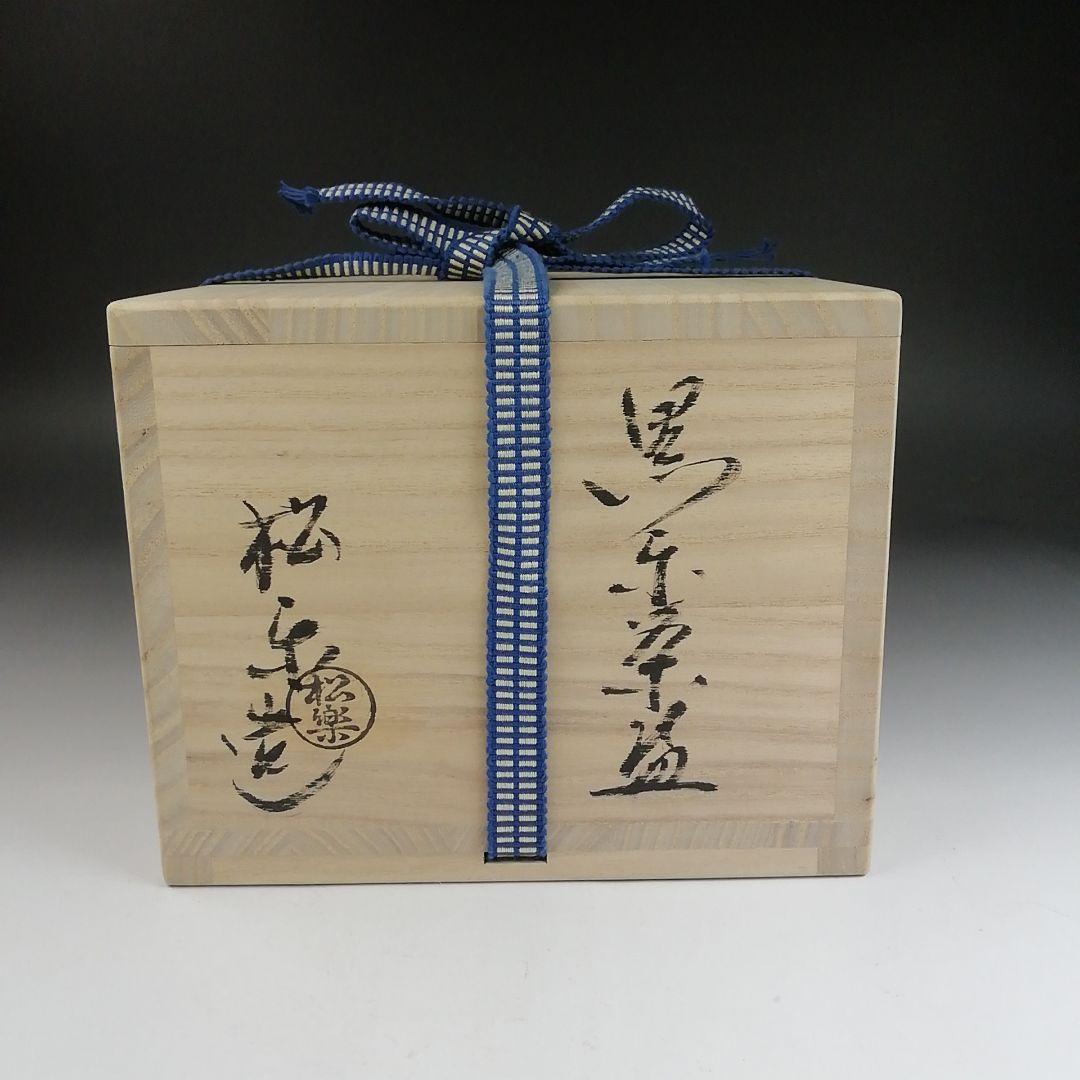 黒楽茶盌
松楽造
松楽